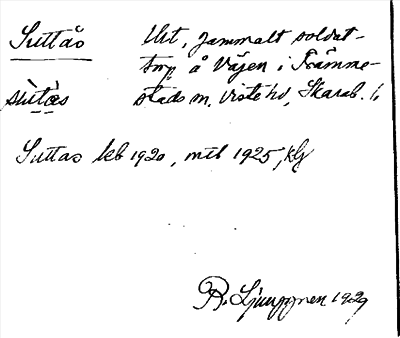 Suttas Ust, gammalt soldat-
torp å Väjen i Främme-
stads sn, Viste hd, Skarab. l.
Suttas leb 1920, mtb 1925, Kg
R. Ljunggren 1929